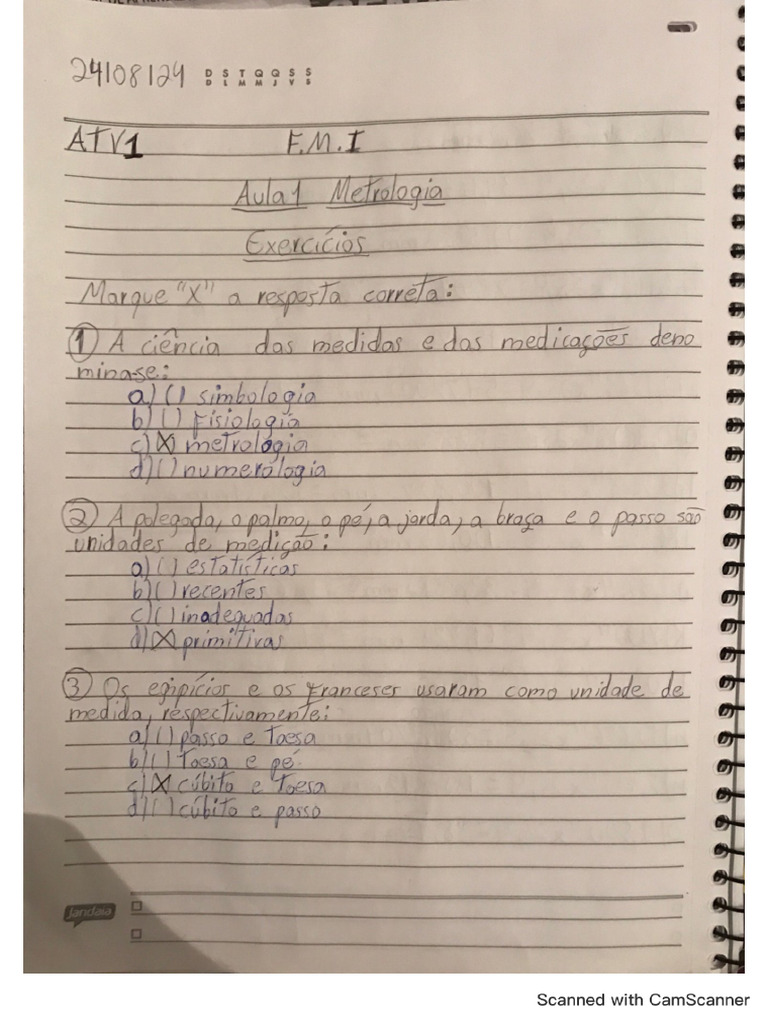 24108124 D S T Q Q S S
D L M M J V S
ATV1 F.M.I
Aula 1 Metrologia
Exercícios
Marque "X" a resposta correta:
① A ciência das medidas e das medicações deno
mina-se:
a) ( ) simbologia
b) ( ) Fisiologia
c) (X) metrologia
d) ( ) numerologia
② A polegada, o palmo, o pé, a jarda, a braça e o passo são
unidades de medição:
a) ( ) estatísticas
b) ( ) recentes
c) ( ) inadequadas
d) (X) primitivas
③ Os egipícios e os Franceser usaram como unidade de
medida, respectivamente:
a) ( ) passo e toesa
b) ( ) Toesa e pé.
c) (X) cúbito e toesa
d) ( ) cúbito e passo
Jandaia
Scanned with CamScanner